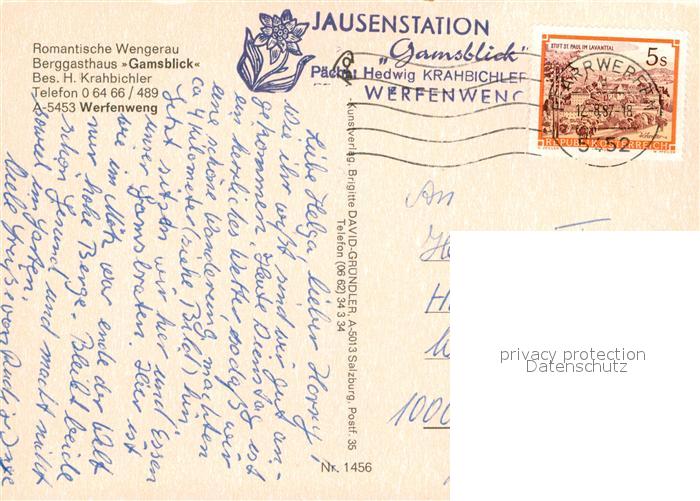 Romantische Wengerau
Berggasthaus »Gamsblick«
Bes. H. Krahbichler
Telefon 0 64 66 / 489
A-5453 Werfenweng
JAUSENSTATION
„Gamsblick"
Pächt. Hedwig KRAHBICHLER
WERFENWENG
STIFT ST. PAUL IM LAVANTTAL
5s
REPUBLIK ÖSTERREICH
PFARRWERFEN
12.-8.87-18
5452
Liebe Helga, lieber Horst!
Wie ihr wißt, sind wir gut an-
gekommen. Heute Dienstag ist
ein herrliches Wetter, sodaß wir
eine schöne Wanderung machten
ca 4 Kilometer (siehe Bild) hin
Jetzt sitzen wir hier und Essen
unser Gamsbraten. Hier ist
wie im Mölz war ende der Welt
nur hohe Berge. Bleibt beide
schön Gesund und macht nicht
soviel im Garten.
Liebe Grüße von Rudi + Inge
Kunstverlag, Brigitte DAVID-GRÜNDLER, A-5013 Salzburg, Postf. 35
Telefon (06 62) 34 3 34
An
1000
Nr. 1456
privacy protection
Datenschutz